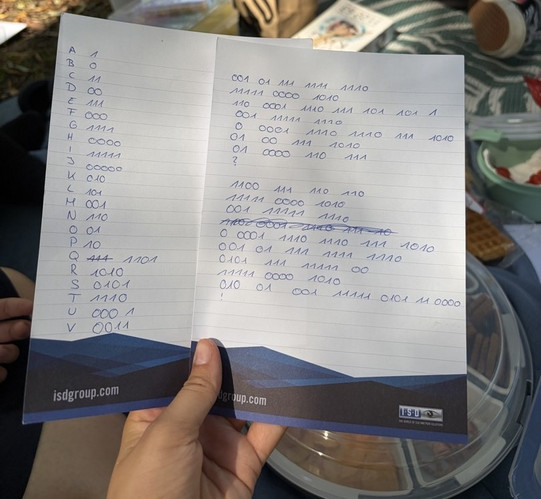 A 1
B 0
C 11
D 00
E 111
F 000
G 1111
H 0000
I 11111
J 00000
K 010
L 101
M 001
N 110
O 01
P 10
Q 1101
R 1010
S 0101
T 1110
U 0001
V 0011
isdgroup.com
001 01 111 1111 1110
11111 0000 1010
110 0001 1110 111 101 101 1
001 11111 1110
0 0001 1110 1110 111 1010
01 00 111 1010
01 0000 110 111
?
1100 111 110 110
11111 0000 1010
001 11111 1110
0 0001 1110 1110 111 1010
001 01 111 1111 1110
0101 111 11111 00
11111 0000 1010
010 01 001 11111 0101 11 0000
!
group.com
ISD